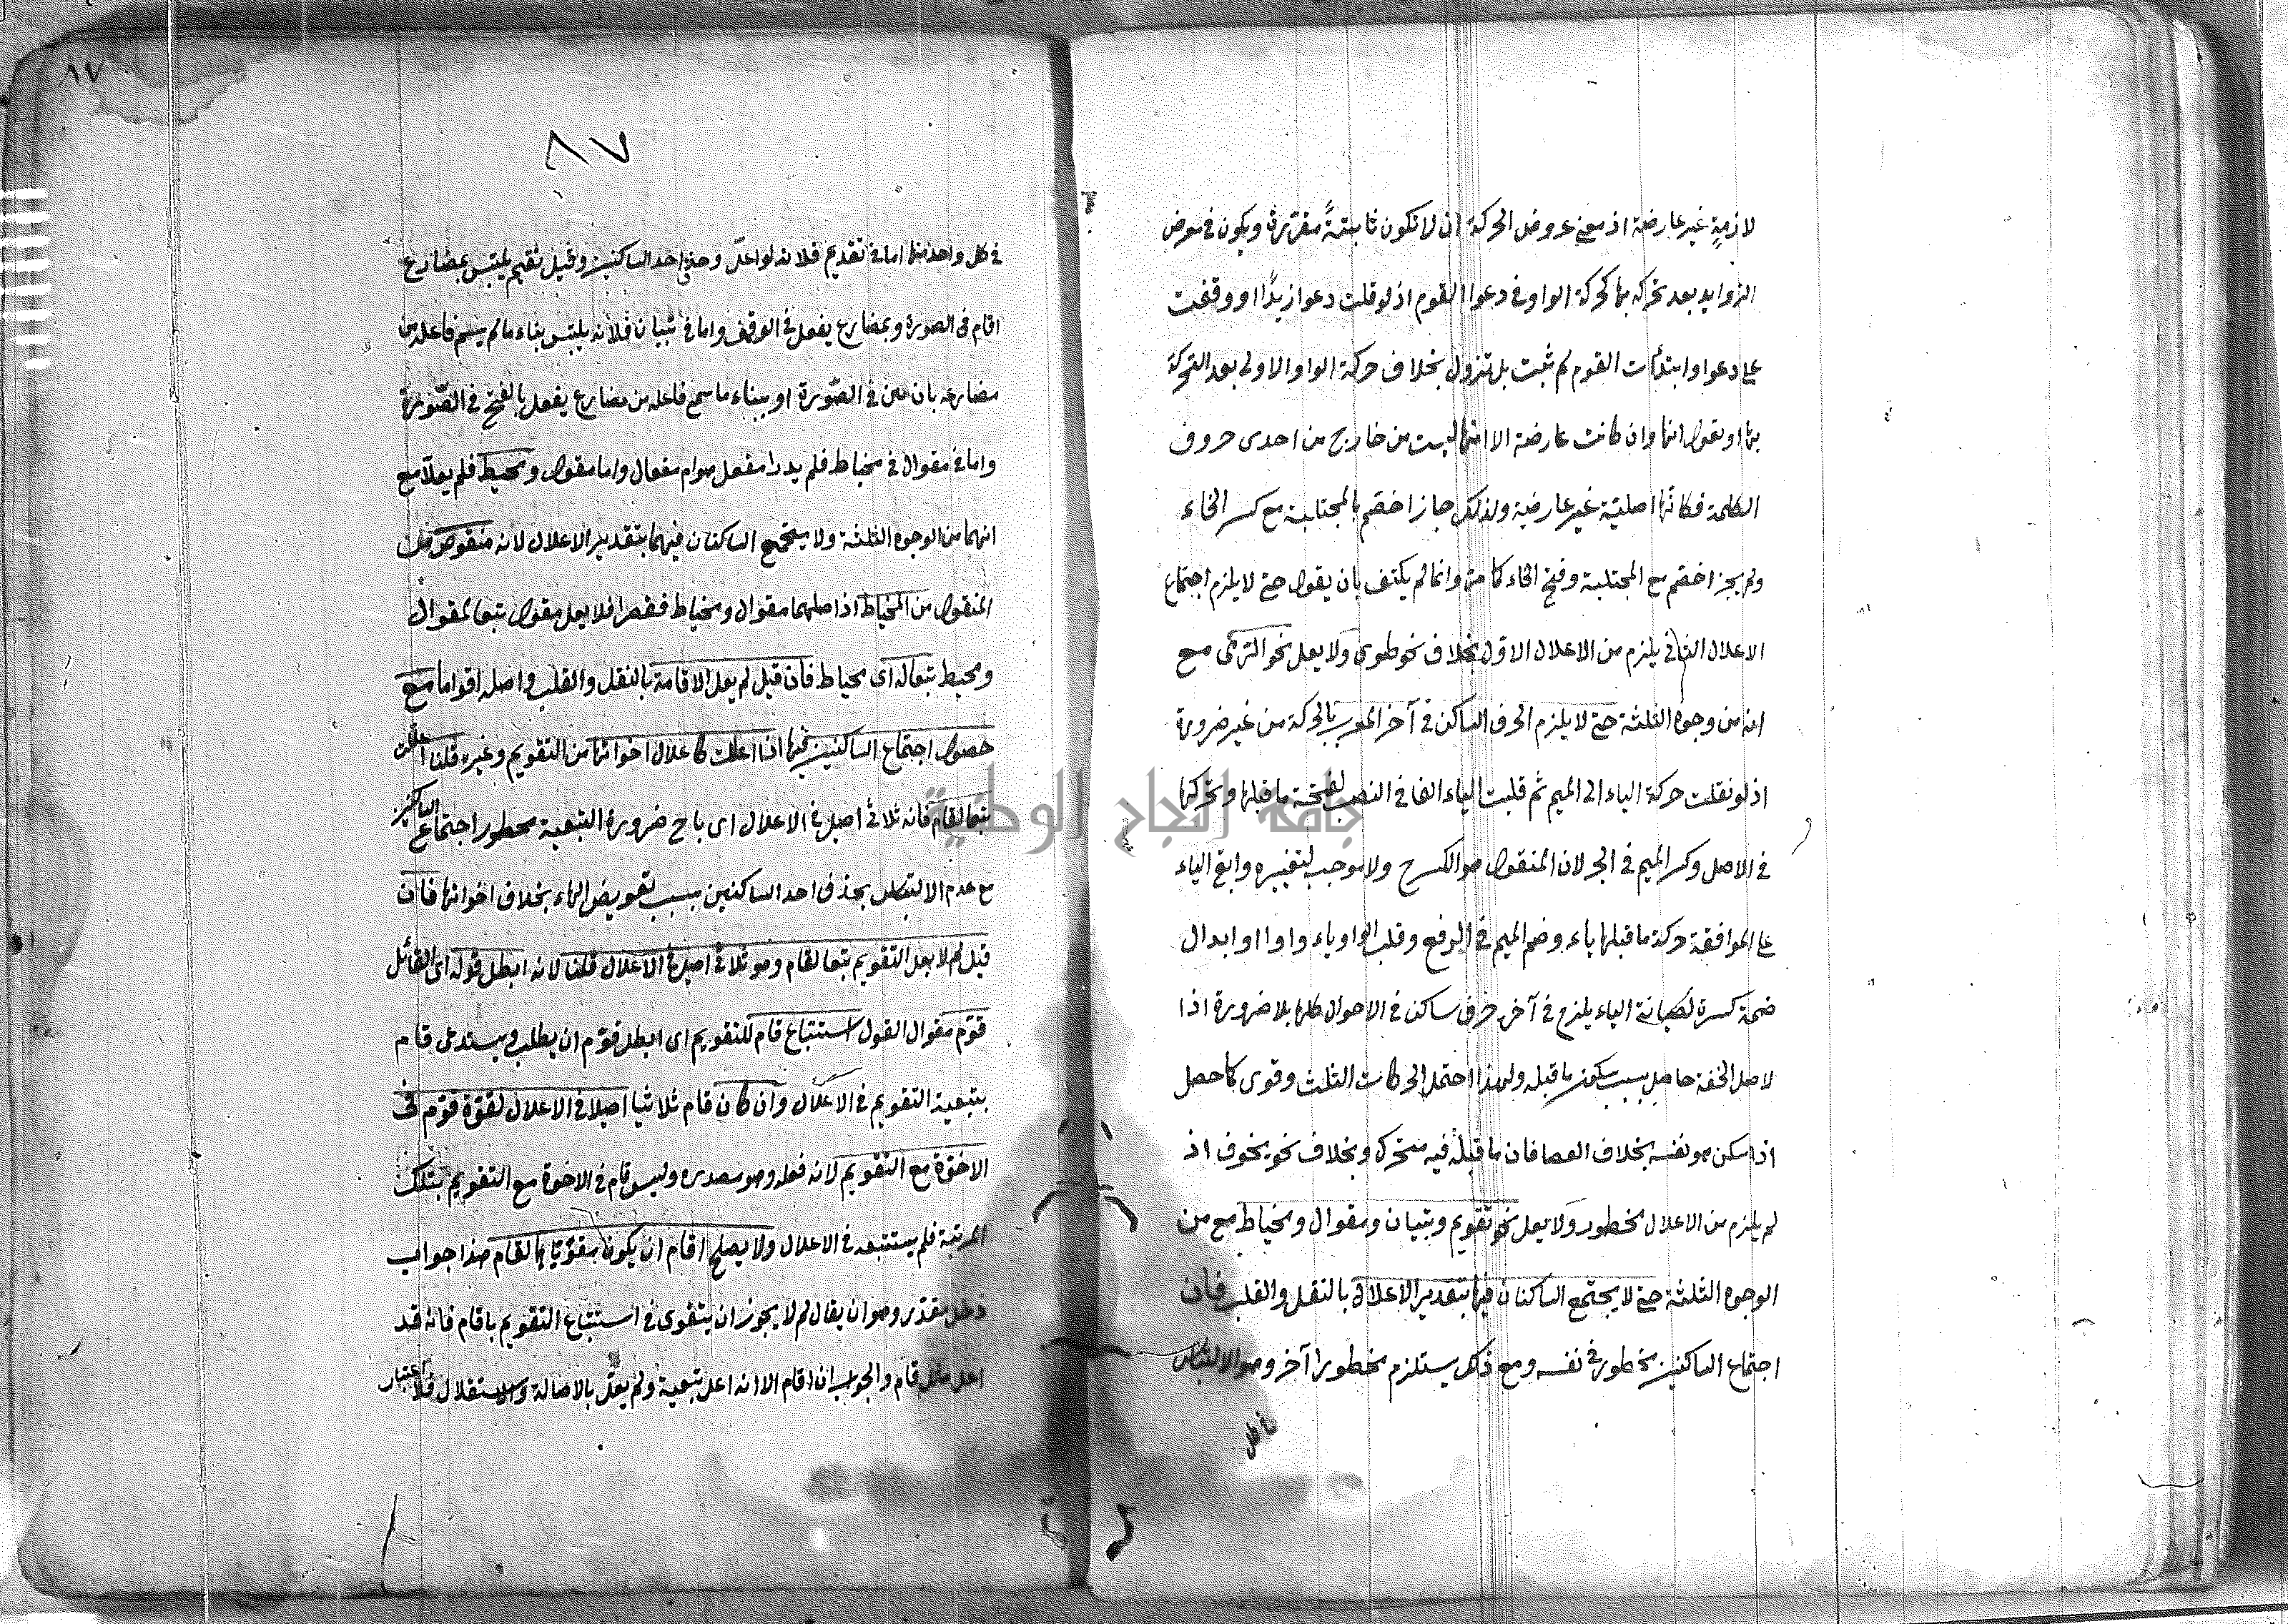 لازمةٍ غير عارضة اذ معنى عروض الحركة ان لا تكون ثابتةً مقررة ويكون في معرض
الزوايد بعد تحركه بها كحركة الواو في دعوا القوم اذ لو قلت دعوا زيدًا او وقفت
على دعوا وابتدأت القوم لم تثبت بل تزول بخلاف حركة الواو الاولى بعد التحركة
بها او نقول انها وان كانت عارضة الا انها ليست من خارج من احدى حروف
الكلمة فكانها اصلية غير عارضية ولذلك جاز اخصم بالمجتلبة مع كسر الخاء
ولم يجز اخصم مع المجتلبة وفتح الخاء كما مر وانما لم يكتف بان يقول حتى لا يلزم اجتماع
الاعلال الثاني يلزم من الاعلال الاول بخلاف نحو طوى ولا يعل نحو الرمى مع
انه من وجوه الثلثة حتى لا يلزم الحرف الساكن في آخر المعرب بالحركة من غير ضرورة
اذ لو نقلت حركة الياء الى الميم ثم قلبت الياء الفا في النصب لفتحة ما قبلها وتحركها
في الاصل وكسر الميم في الجر لان المنقول هو الكسرة ولا موجب لتغييره وابقى الياء
على الموافقة حركة ما قبلها ياء وضم الميم في الرفع وقلب الواو ياء واوا او ابدال
ضمة كسرة لصيانة الياء يلزم في آخره حرف ساكن في الاحوال كلها بلا ضرورة اذا
لاصل الخفة حاصل بسبب سكون ما قبله ولهذا احتمل الحركات الثلث وقوى كما حصل
اذا سكن هو نفسه بخلاف العصا فان ما قبله فيه متحرك وبخلاف نحو يخوف اذ
لم يلزم من الاعلال محظور ولا يعل نحو تقويم وتبيان ومقوال ومخياط مع من
الوجوه الثلثة حتى لا يجتمع الساكنان فيها بتقدير الاعلال بالنقل والقلب فان
اجتماع الساكنين محظور في نفسه ومع ذلك يستلزم محظورا آخر وهو الالتباس
٨٧
٨٧
في كل واحد منها اما في تقديم فلانه لو اعل وحذف احد الساكنين وقيل تقيم يلتبس بمضارع
اقام في الصورة وبمضارع يفعل في الوقف واما في تبيان فلانه يلتبس بناء ما لم يسم فاعله من
مضارعه بان من في الصورة او ببناء ما سمع فاعله من مضارع يفعل بالفتح في الصورة
واما في مقوال في مخياط فلم يدر ا مفعل هو ام مفعال واما مقول ومخيط فلم يعلا مع
انهما من الوجوه الثلثة ولا يجتمع الساكنان فيهما بتقدير الاعلال لانه منقوص من
المنقول من المخياط اذ اصلهما مقوال ومخياط فقصرا فلا يعل مقول تبعا لمقوال
ومخيط تبعا له اى مخياط فان قيل لم يعل الاقامة بالنقل والقلب واصله اقواما مع
حصول اجتماع الساكنين فيها اذا اعلت كاعلال اخواتها من التقويم وغيره قلنا اعلت
تبعا لقام فانه ثلاثى اصيل في الاعلال اى باح ضرورة التبعية محظور اجتماع الساكنين
مع عدم الالتباس بحذف احد الساكنين بسبب تعويض الهاء بخلاف اخواتها فان
قيل لم لا يعل التقويم تبعا لقام وهو ثلاثى اصيل في الاعلال قلنا لانه ابطل قوله اى القائل
قوّم مقوال القول استتباع قام للتقويم اى ابطل قوّم ان يطلب ويستدعى قام
بتبعية التقويم في الاعلال وان كان قام ثلاثيا اصيلا في الاعلال لقوة قوّم في
الاخوّة مع التقويم لانه فعله وهو مصدره وليس قام في الاخوة مع التقويم بتلك
المرتبة فلم يستتبعه في الاعلال ولا يصلح اقام ان يكون مقوّيا لقام هذا جواب
دخل مقدر وهو ان يقال لم لا يجوز ان يتقوى في استتباع التقويم باقام فانه قد
اعل مثل قام والجواب ان اقام الا انه اعل تبعية ولم يعل بالاصالة والاستقلال فلا اعتبار
جامعة النجاح الوطنية